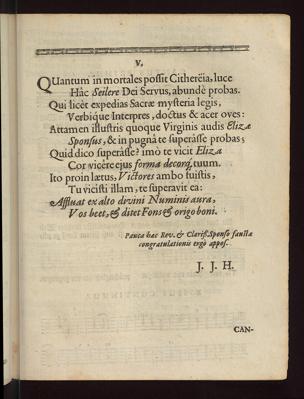 V.
Quantum in mortales possit Citherëia, luce
Hâc Seilere Dei Servus, abundè probas.
Qui licèt expedias Sacræ mysteria legis,
Verbique Interpres, doctus & acer oves:
Attamen illustris quoque Virginis audis Elizæ
Sponsus, & in pugnâ te superâsse probas;
Quid dico superâsse? imò te vicit Eliza
Cor vicêre ejus forma decorq; tuum.
Ito proin lætus, Victores ambo fuistis,
Tu vicisti illam, te superavit ea:
Affluat ex alto divini Numinis aura,
Vos beet, & ditet Fons & origo boni.
Pauca hæc Rev. & Clariss. Sponso faustæ
congratulationis ergò appos.
J. J. H.
CAN-